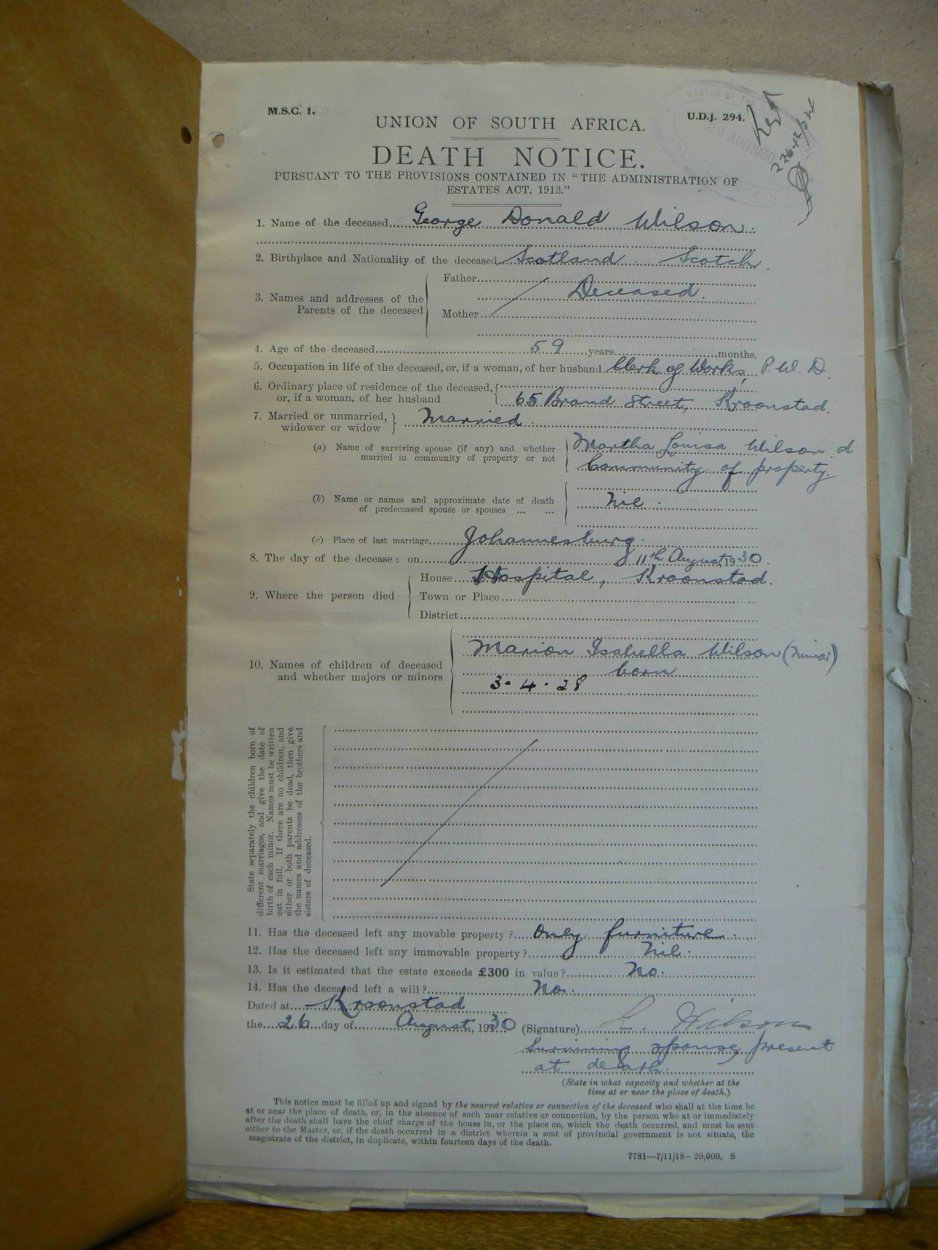 M.S.C. 1.
U.D.J. 294.
UNION OF SOUTH AFRICA.
DEATH NOTICE.
PURSUANT TO THE PROVISIONS CONTAINED IN "THE ADMINISTRATION OF
ESTATES ACT, 1913."
1. Name of the deceased George Donald Wilson.
2. Birthplace and Nationality of the deceased Scotland. Scotch.
3. Names and addresses of the Parents of the deceased
Father
Deceased.
Mother
4. Age of the deceased 59 years months.
5. Occupation in life of the deceased, or, if a woman, of her husband Clerk of Works, P.W.D.
6. Ordinary place of residence of the deceased,
or, if a woman, of her husband 65 Brand Street, Kroonstad.
7. Married or unmarried,
widower or widow Married.
(a) Name of surviving spouse (if any) and whether
married in community of property or not
Martha Louisa Wilson
Community of property.
(b) Name or names and approximate date of death
of predeceased spouse or spouses ... ...
Nil.
(c) Place of last marriage Johannesburg.
8. The day of the decease: on 11th August 1930.
9. Where the person died
House Hospital, Kroonstad.
Town or Place
District
10. Names of children of deceased
and whether majors or minors
Marion Isabella Wilson (minor)
born
3.4.28
State separately the children born of
different marriages, and give the date of
birth of each minor. Names must be written
out in full. If there are no children, and
either or both parents be dead, then give
the names and addresses of the brothers and
sisters of deceased.
11. Has the deceased left any movable property? Only furniture.
12. Has the deceased left any immovable property? Nil.
13. Is it estimated that the estate exceeds £300 in value? No.
14. Has the deceased left a will? No.
Dated at Kroonstad
the 26 day of August, 1930 (Signature) L. Wilson
Surviving spouse, present
at death.
(State in what capacity and whether at the
time at or near the place of death.)
This notice must be filled up and signed by the nearest relative or connection of the deceased who shall at the time be
at or near the place of death, or, in the absence of such near relative or connection, by the person who at or immediately
after the death shall have the chief charge of the house in, or the place on, which the death occurred, and must be sent
either to the Master, or, if the death occurred in a district wherein a seat of provincial government is not situate, the
magistrate of the district, in duplicate, within fourteen days of the death.
7781—7/11/18—20,000. S